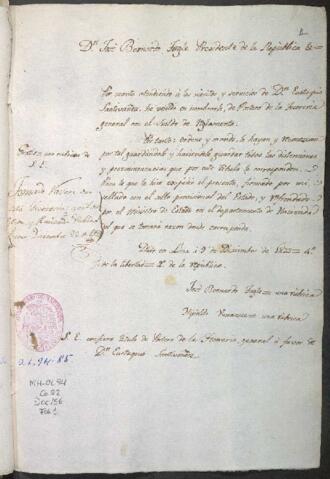 1
Dn. José Bernardo Tagle Presidente de la Republica &a
Por quanto atendiendo a los meritos y servicios de Dn. Eustaquio
Santivañez, he venido en nombrarle de Portero de la Tesoreria
general con el sueldo de Reglamento.
Por tanto: ordeno y mando, lo hayan y reconozcan
por tal guardandole y haciendole guardar todas las distinciones
y preeminencias que por este titulo le corresponden.
Para lo que le hice expedir el presente, firmado por mi
sellado con el sello provisional del Estado, y refrendado
por el Ministro de Estado en el departamento de Hacienda
del que se tomará razon donde corresponda.
Dado en Lima á 9 de Diciembre de 1823 4º
de la libertad 2º de la republica.
José Bernardo Tagle una rubrica
Hipolito Unanue una rubrica
S. E. confiere titulo de Portero de la Tesoreria general á favor de
Dn. Eustaquio Santivañez
S. E.
Tomada Razon en
MH-OL 94
Ca. 22
Doc 156
Fol. 1